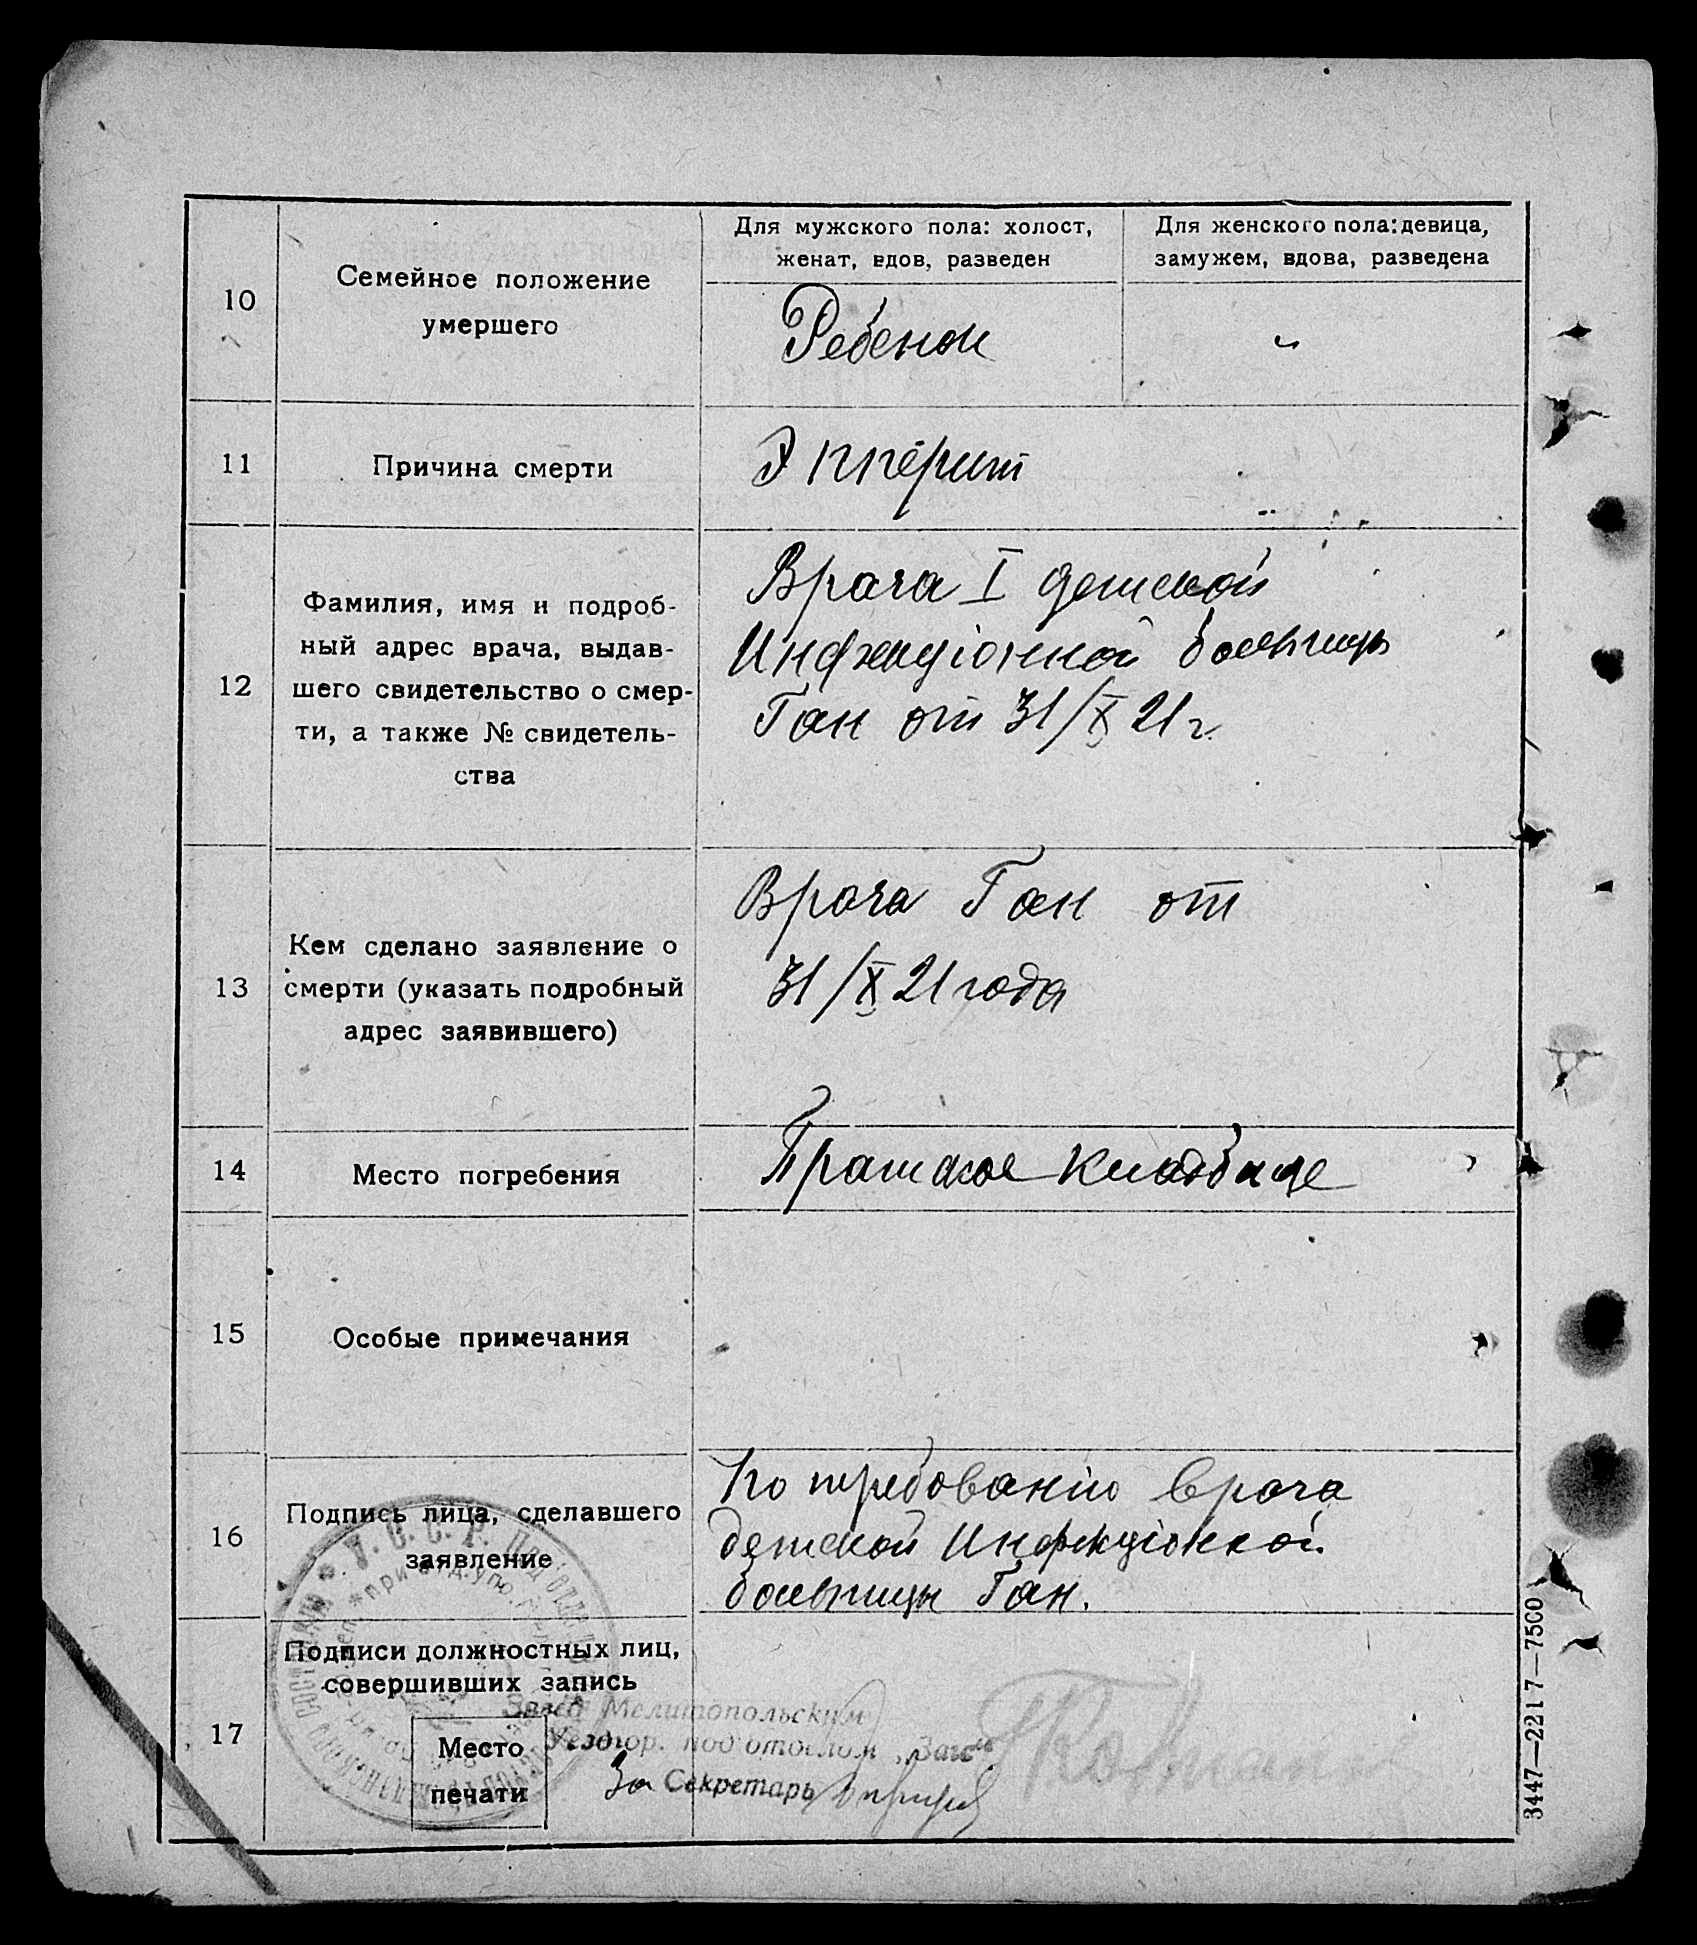 10
Семейное положение
умершего
Для мужского пола: холост,
женат, вдов, разведен
Для женского пола: девица,
замужем, вдова, разведена
Ребенок
11
Причина смерти
12
Фамилия, имя и подроб-
ный адрес врача, выдав-
шего свидетельство о смер-
ти, а также № свидетель-
ства
Врача I детской
Инфекціонной больницы
Ган от 31/X 21 г.
13
Кем сделано заявление о
смерти (указать подробный
адрес заявившего)
Врача Ган от
31/X 21 года
14
Место погребения
Братское кладбище
15
Особые примечания
16
Подпись лица, сделавшего
заявление
По требованію врача
детской Инфекціонной
больницы Ган.
17
Подписи должностных лиц,
совершивших запись
Место
печати
Завед Мелитопольским
Уездгор. подотделом „Загс“
За Секретарь
У. С. С. Р.
3447—2217—7500